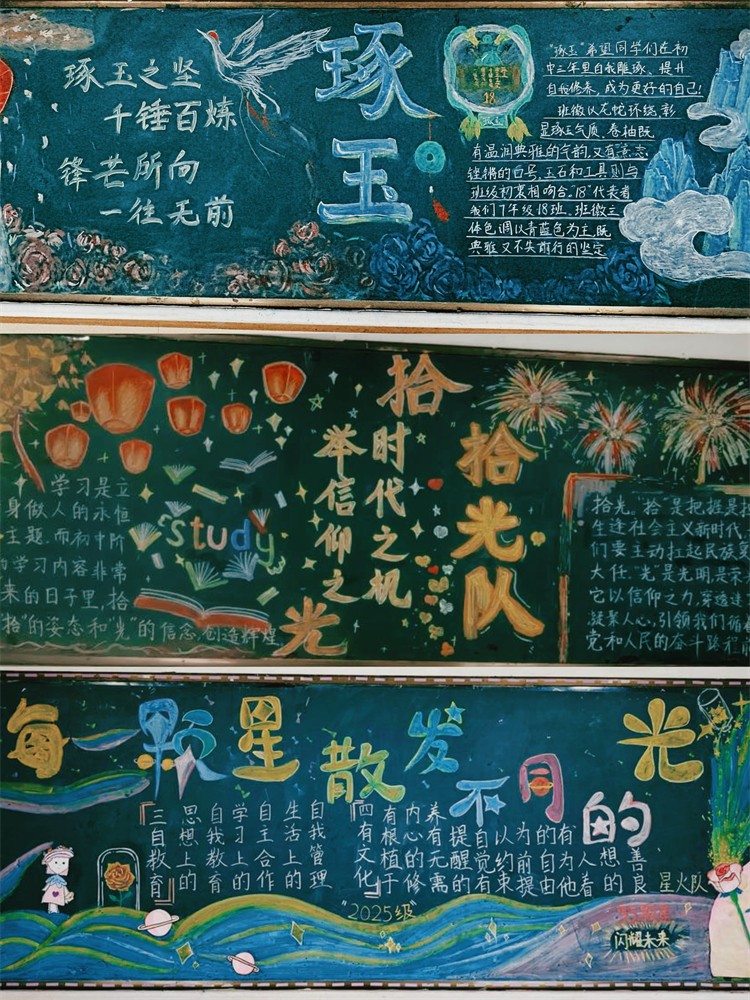 琢玉之坚
千锤百炼
锋芒所向
一往无前
琢玉
18
"琢玉"希望同学们在初
中三年里自我雕琢、提升
自我修养,成为更好的自己!
班徽以龙蛇环绕,彰
显琢玉气质,卷轴既
有温润典雅的气韵,又有意志
铿锵的口号,玉石和工具则与
班级初衷相吻合,"18"代表着
我们7年级18班,班徽主
体色调以青蓝色为主,既
典雅又不失前行的坚定
学习是立
身做人的永恒
主题,而初中阶
的学习内容非常
来的日子里,拾
拾"的姿态和"光"的信念,创造辉煌
study
拾时代之机
举信仰之光
拾光队
拾光。拾"是把握,是
生逢社会主义新时代
们要主动扛起民族
大任,"光"是光明,是
它以信仰之力,穿透
凝聚人心,引领我们循
党和人民的奋斗路程
每一颗星散发不同的光
「三自教育」
思想上的
自我教育
学习上的
自主合作
生活上的
自我管理
「四有文化」
有根植于
内心的修
养有无需
提醒的
自觉有
以约束
为前提
的自由
有为他
人着
想的
善良
星火队
"2025级"
闪耀未来